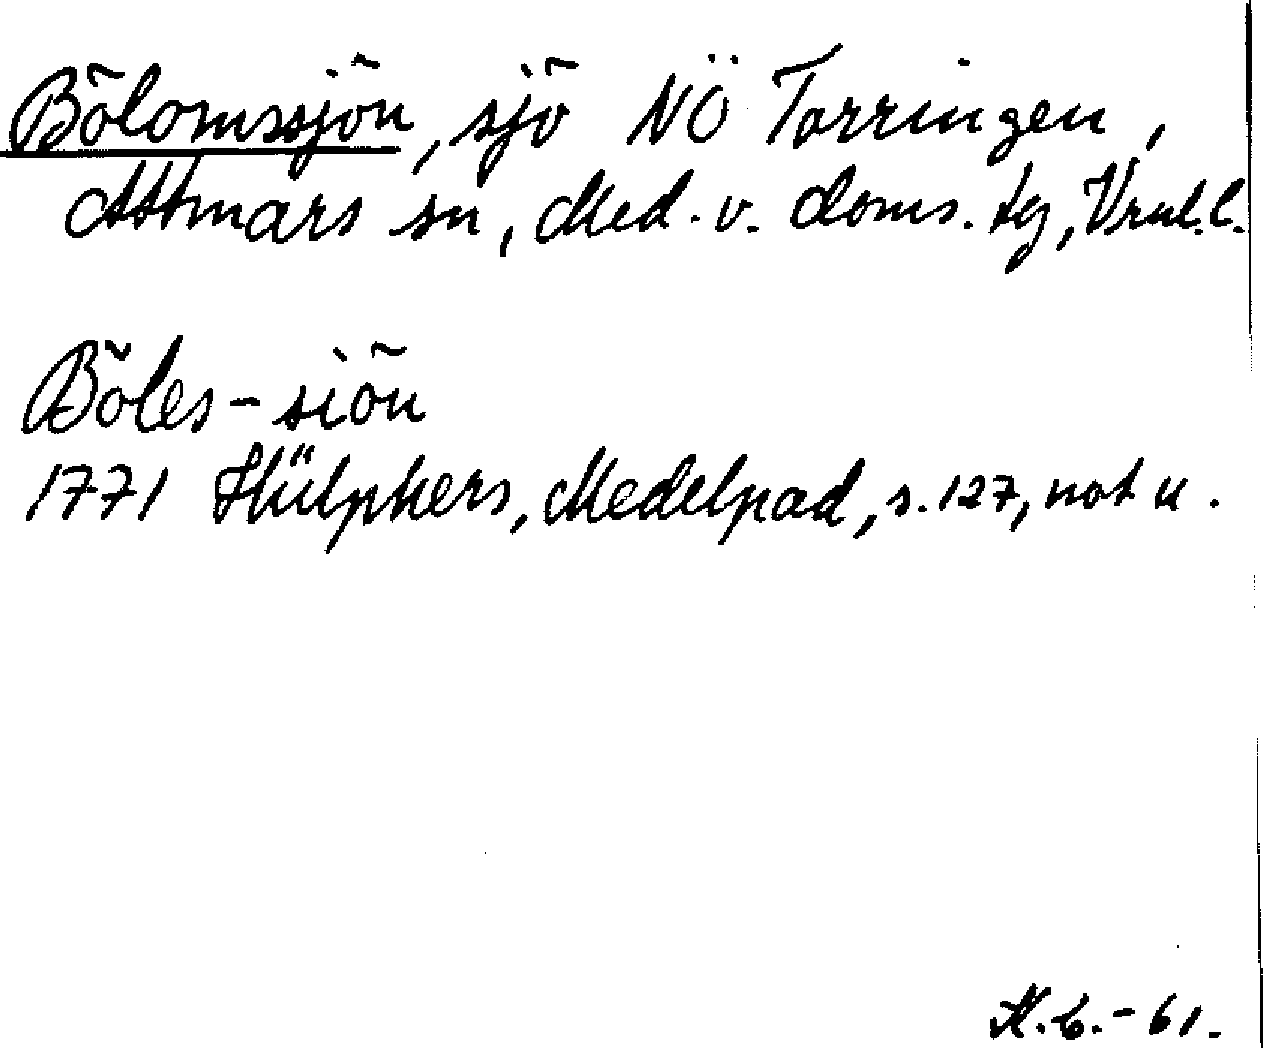 Bölomssjön, sjö NÖ Torringen,
Attmars sn, Med. v. doms. tg, Vrnl.l.
Böles-siön
1771 Hülphers, Medelpad, s. 127, not u.
K.C.-61.